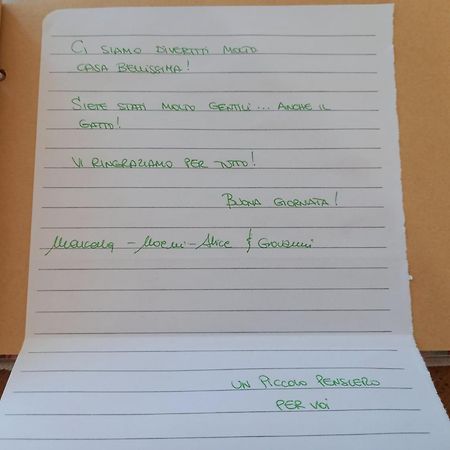 CI SIAMO DIVERTITI MOLTO
CASA BELLISSIMA!
SIETE STATI MOLTO GENTILI... ANCHE IL
GATTO!
VI RINGRAZIAMO PER TUTTO!
BUONA GIORNATA!
Noemi - Alice & Giovanni
UN PICCOLO PENSIERO
PER VOI